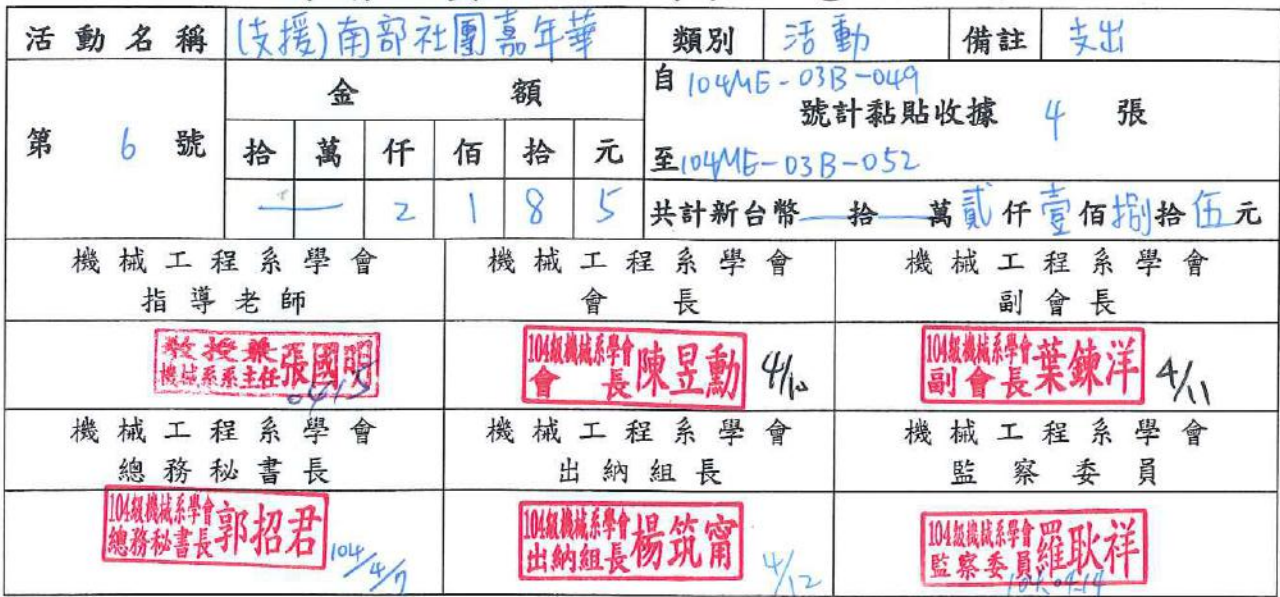 活動名稱 (支援)南部社團嘉年華 類別 活動 備註 支出
第 6 號
金額
拾 萬 仟 佰 拾 元
2 1 8 5
自104ME-03B-049
號計黏貼收據 4 張
至104ME-03B-052
共計新台幣 拾 萬貳仟壹佰捌拾伍元
機械工程系學會 機械工程系學會 機械工程系學會
指導老師 會長 副會長
教授兼
機械系系主任 張國明
104級機械系學會
會長 陳昱勳 4/10
104級機械系學會
副會長 葉鍊洋 4/11
機械工程系學會 機械工程系學會 機械工程系學會
總務秘書長 出納組長 監察委員
104級機械系學會
總務秘書長 郭招君 104/4/7
104級機械系學會
出納組長 楊筑甯 4/12
104級機械系學會
監察委員 羅耿祥
104.04.14